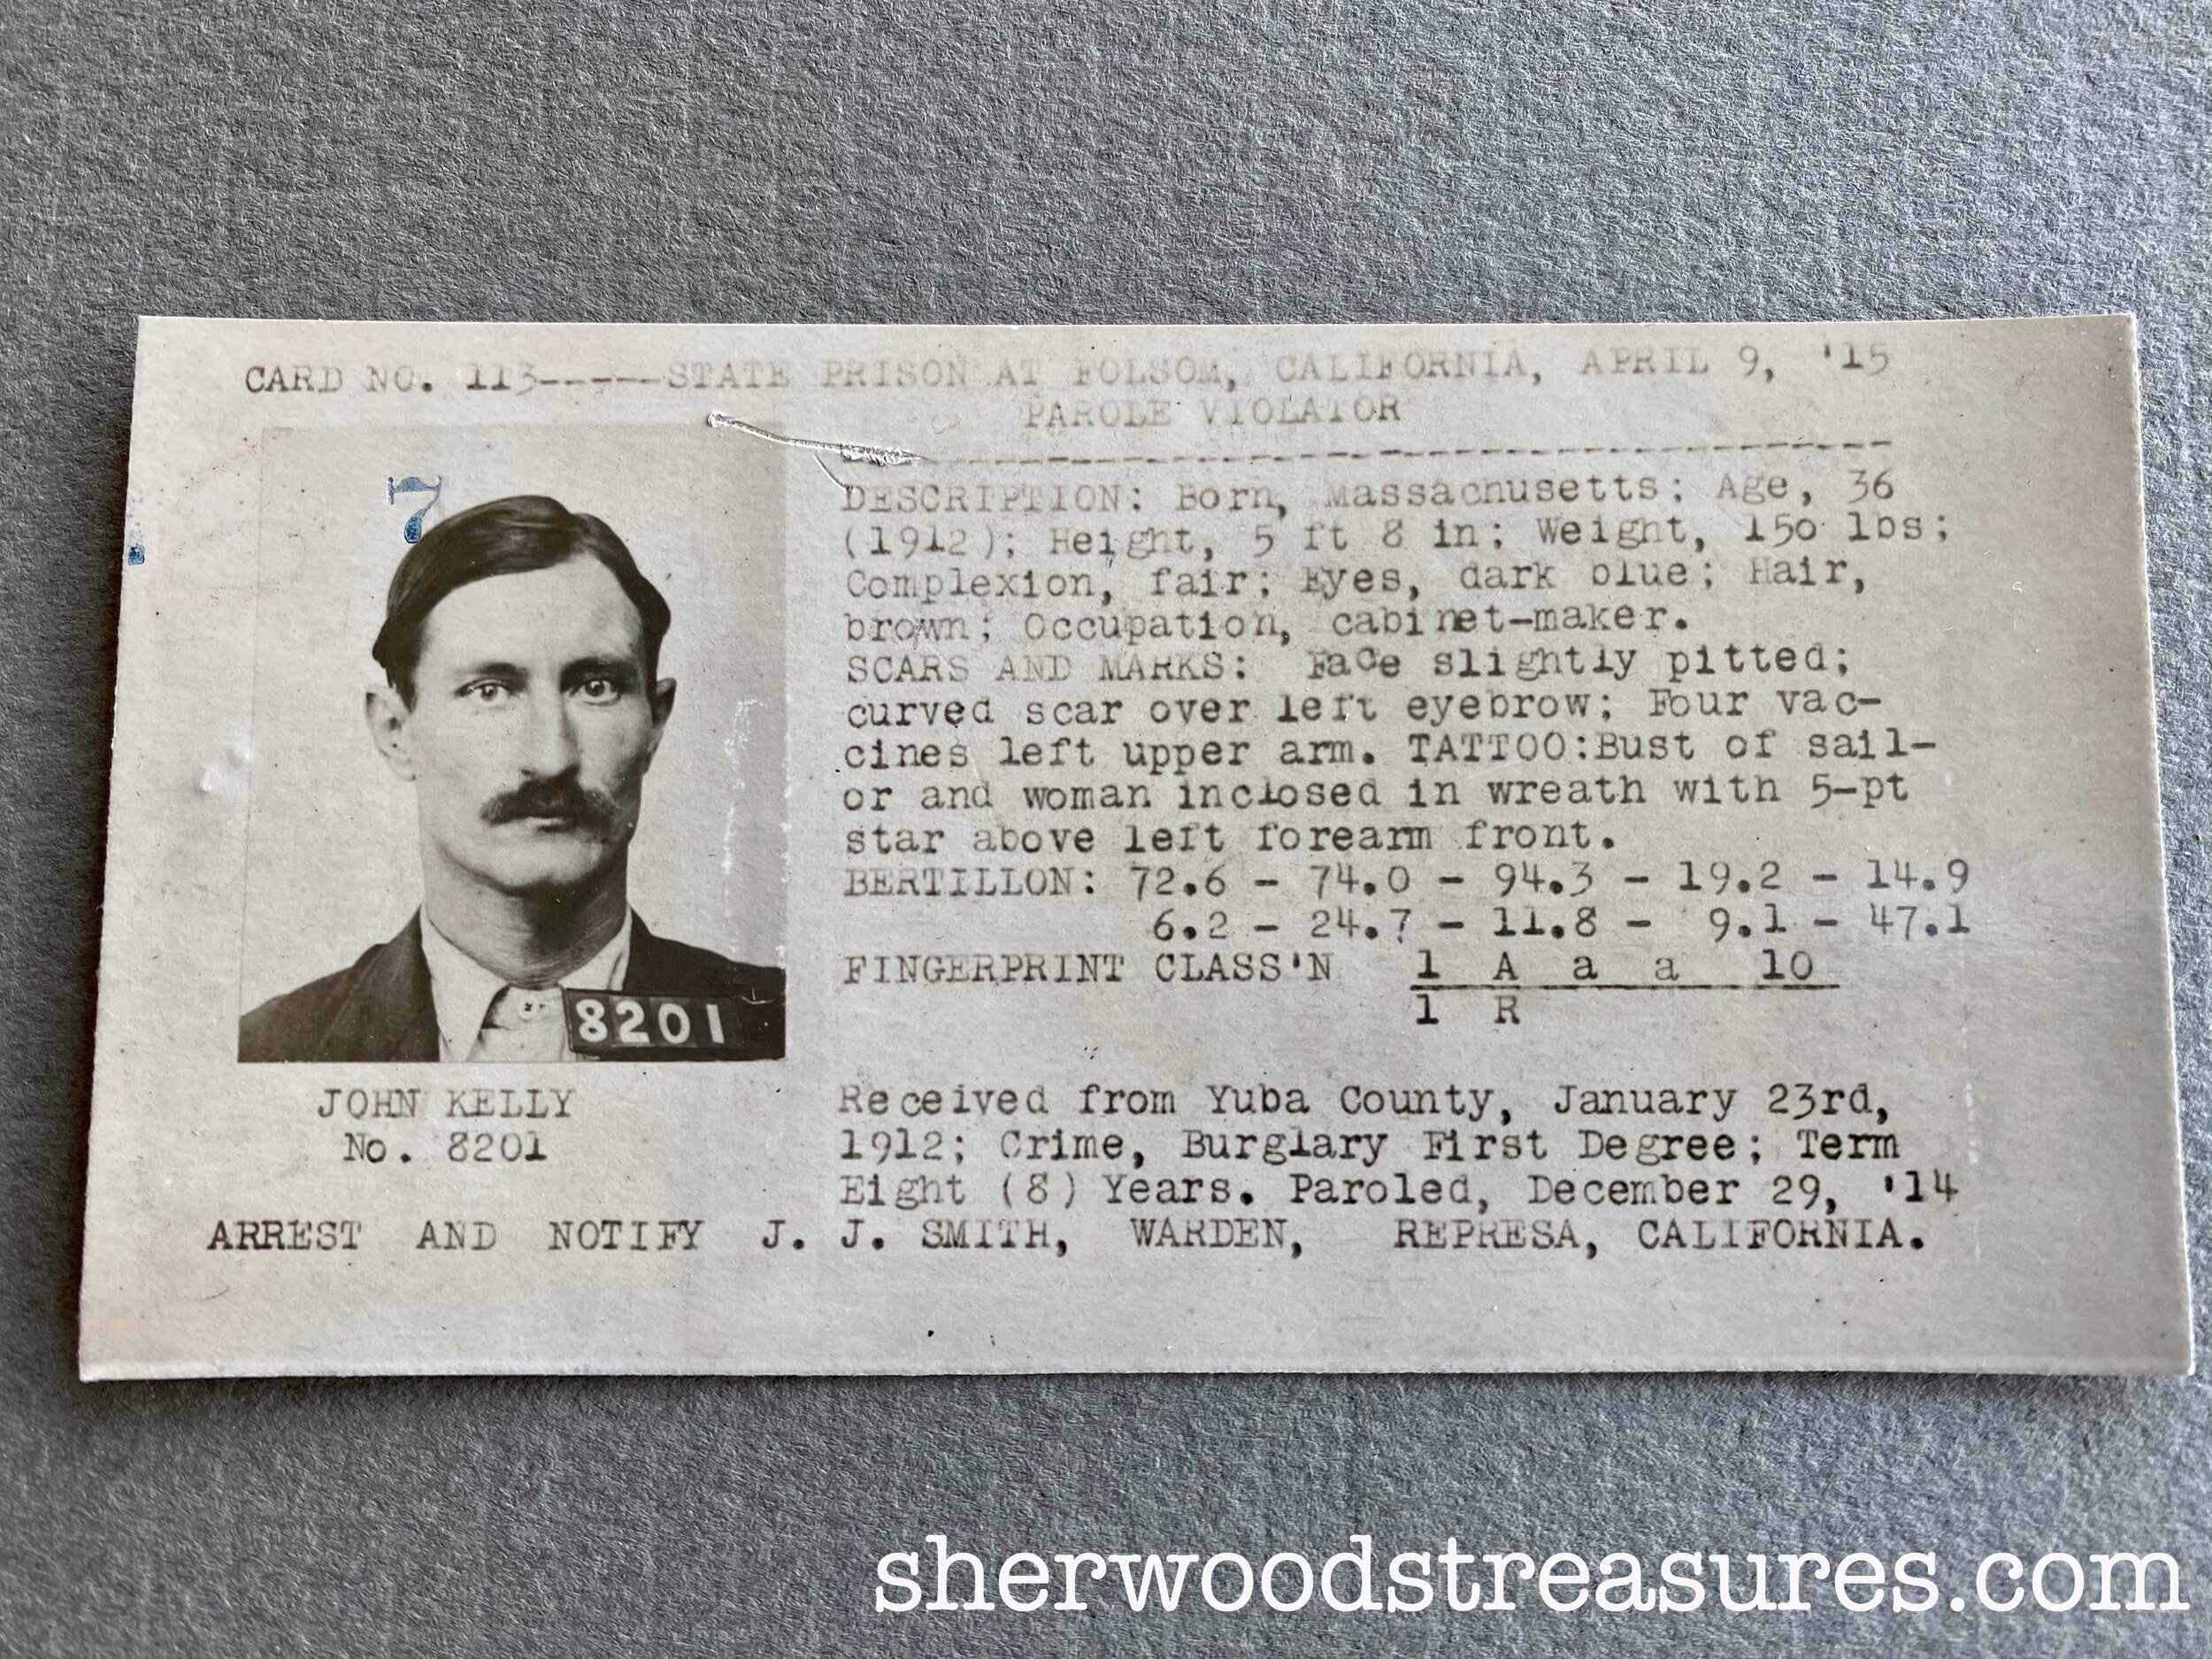 CARD NO. 113-----STATE PRISON AT FOLSOM, CALIFORNIA, APRIL 9, '15
PAROLE VIOLATOR
7
DESCRIPTION: Born, Massachusetts; Age, 36
(1912); Height, 5 ft 8 in; Weight, 150 lbs;
Complexion, fair; Eyes, dark blue; Hair,
brown; Occupation, cabinet-maker.
SCARS AND MARKS: Face slightly pitted;
curved scar over left eyebrow; Four vac-
cines left upper arm. TATTOO:Bust of sail-
or and woman inclosed in wreath with 5-pt
star above left forearm front.
BERTILLON: 72.6 - 74.0 - 94.3 - 19.2 - 14.9
6.2 - 24.7 - 11.8 - 9.1 - 47.1
FINGERPRINT CLASS'N 1 A a a 10
1 R
8201
JOHN KELLY
No. 8201
Received from Yuba County, January 23rd,
1912; Crime, Burglary First Degree; Term
Eight (8) Years. Paroled, December 29, '14
ARREST AND NOTIFY J. J. SMITH, WARDEN, REPRESA, CALIFORNIA.
sherwoodstreasures.com